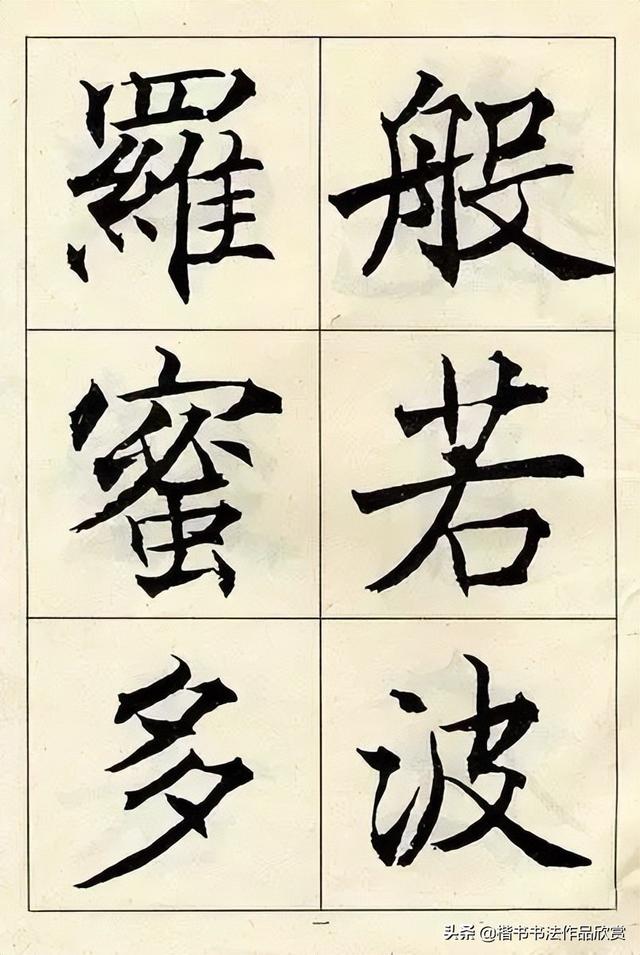 般若波
羅蜜多
一
头条 @楷书书法作品欣赏